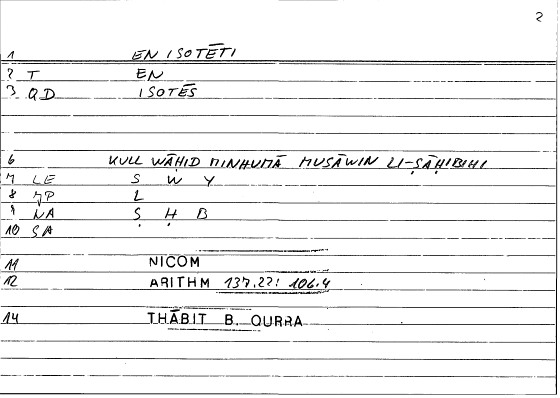 2
1 EN ISOTĒTI
2 T EN
3 QD ISOTĒS
6 KULL WĀḤID MINHUMĀ MUSĀWIN LI-ṢĀḤIBIHI
7 LE S W Y
8 MP L
9 NA Ṣ Ḥ B
10 SA
11 NICOM
12 ARITHM 137.22: 106.4
14 THĀBIT B. QURRA